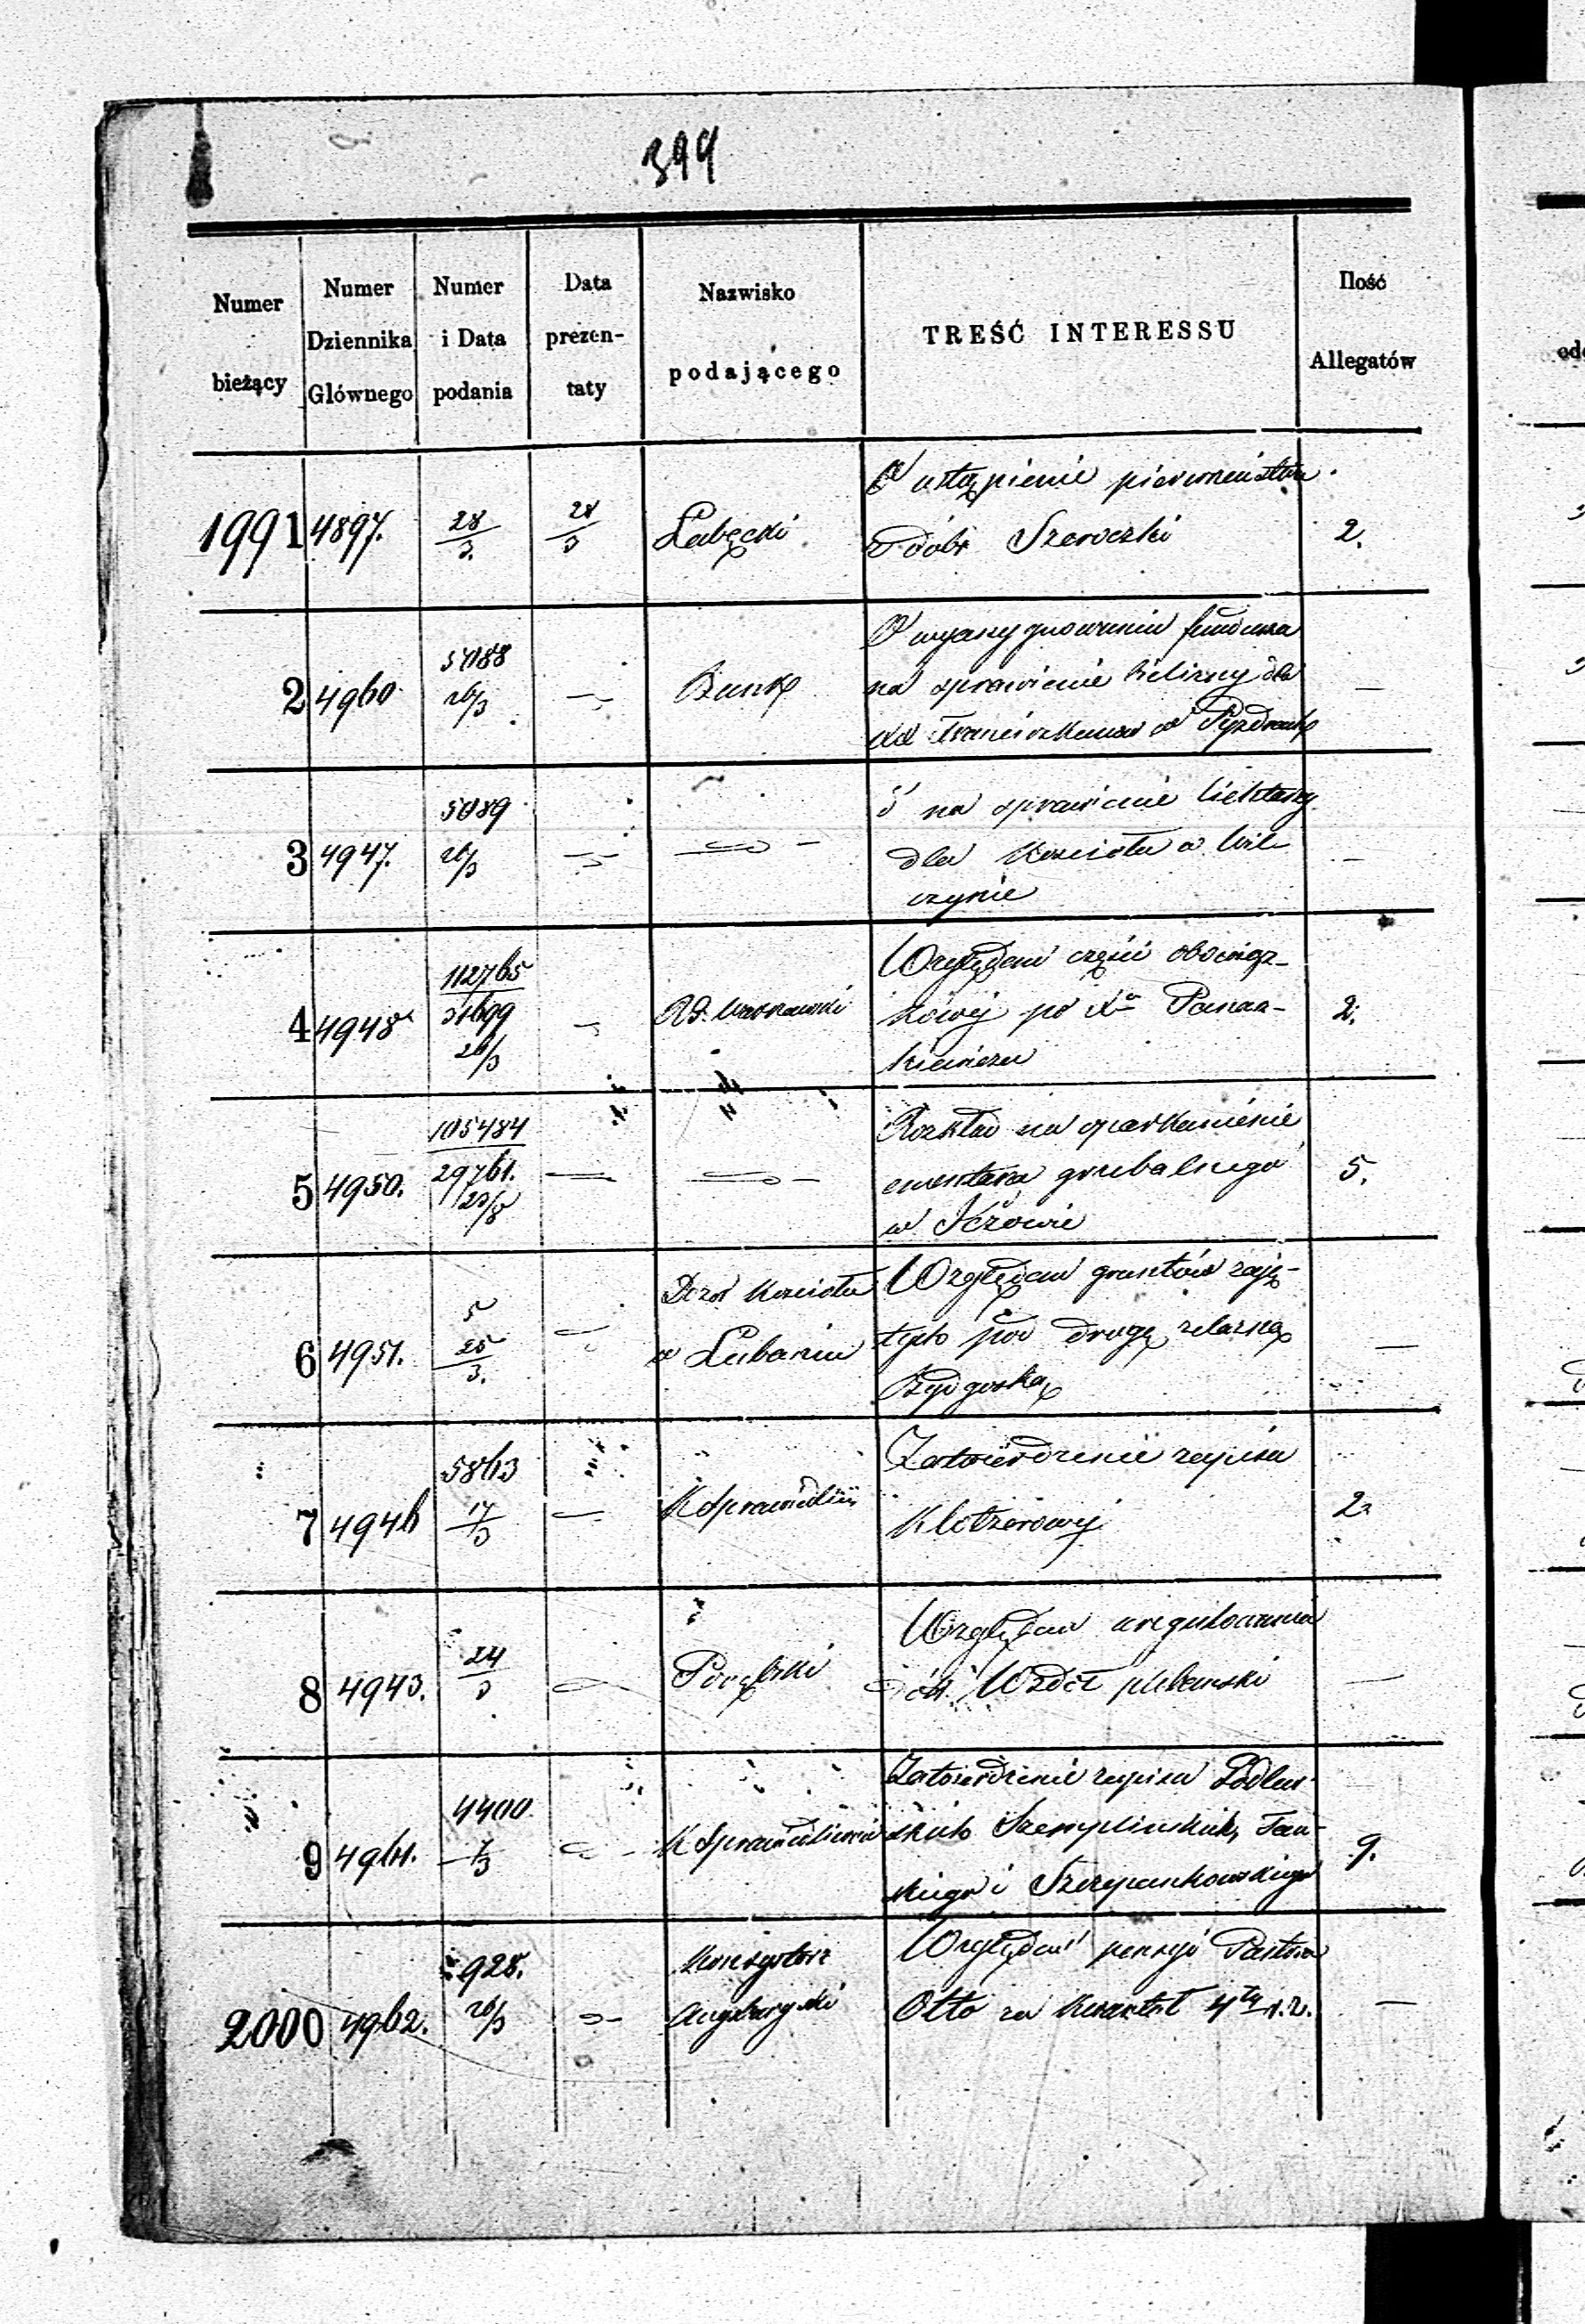 399
Numer bieżący
Numer Dziennika Głównego
Numer i Data podania
Data prezen-taty
Nazwisko podającego
TREŚĆ INTERESSU
Ilość Allegatów
1991 4897. 28/3. 28/3 Łabęcki 2.
O ustąpienie pierwszeństwa
z dóbr Szeroczki
2 4960 26/3 Bank —
O wyasygnowanie funduszu
na sprawienie bielizny dla
XX Franciszkanów w Pyzdrach
3 4947. 5089 26/3 —
d° na sprawienie
dla Kościoła w Wil-
czynie
4 4948 112765 31699 26/3 Rd. Warszawski 2.
Względem części obowiąz-
kowej po Xu Panas-
kiewiczu
5 4950. 105484 29761. 5.
Rozkład na oparkanienie
cmentarza grzebalnego
w Jeżowie
6 4951. 5 25/3. Dozór Kościoła —
w Lubaniu
Względem gruntów zaję-
tych pod drogę żelazną
Bydgoską
7 4946 5863 17/3 K Sprawiedliw 2
Zatwierdzenie zapisu
Klotzerowej
8 4943. 24/3 —
Względem uregulowania
dóbr Wzdół plebański
9 4961. 4400 7/3 K Sprawiedliwości 9.
Zatwierdzenie zapisu Podlew-
skich Szemplińskich, Tań-
skiego i Szczepankowskiego
2000 4962. 928. 26/3 Konsystorz —
Augsburgski
Względem pensyi Pastora
Otto za kwartał 4ty r.z.